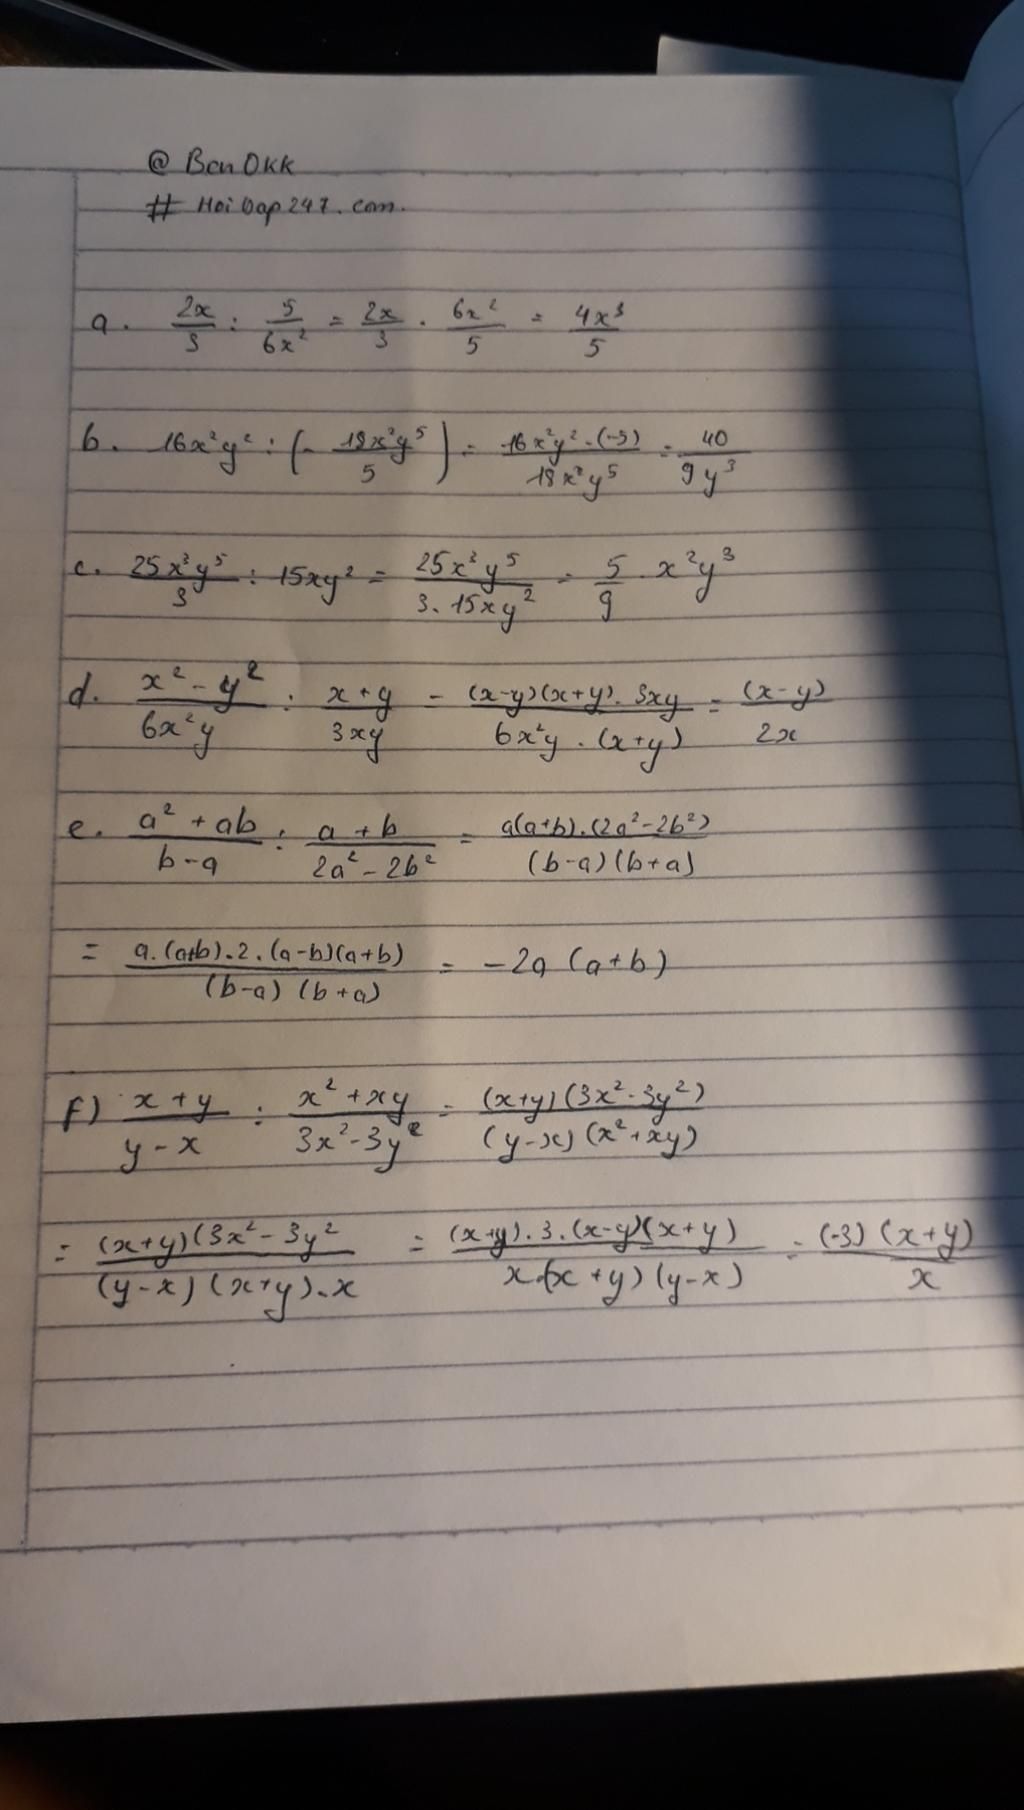 @ BenOkk
# Hoidap247.com.
a. 2x/3 : 5/6x² = 2x/3 . 6x²/5 = 4x³/5
b. 16x²y² : (- 18x²y⁵/5) = 16x²y² . (-5)/18x²y⁵ = 40/9y³
c. 25x³y⁵/3 : 15xy² = 25x³y⁵/3.15xy² = 5/9 . x²y³
d. x² - y²/6x²y : x + y/3xy = (x-y)(x+y) . 3xy/6x²y . (x+y) = (x-y)/2x
e. a² + ab/b-a : a + b/2a² - 2b² = a(a+b).(2a²-2b²)/(b-a)(b+a)
= a.(a+b).2.(a-b)(a+b)/(b-a)(b+a) = -2a (a+b)
f) x + y/y - x : x² + xy/3x² - 3y² = (x+y)(3x²-3y²)/(y-x)(x²+xy)
= (x+y)(3x² - 3y²/(y-x)(x+y).x = (x+y).3.(x-y)(x+y)/x.(x+y)(y-x) = (-3)(x+y)/x